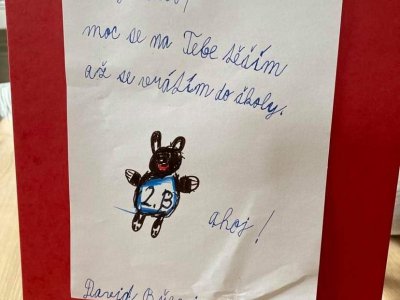 moc se na Tebe těším
až se vrátím do školy.
2.B
ahoj!
David